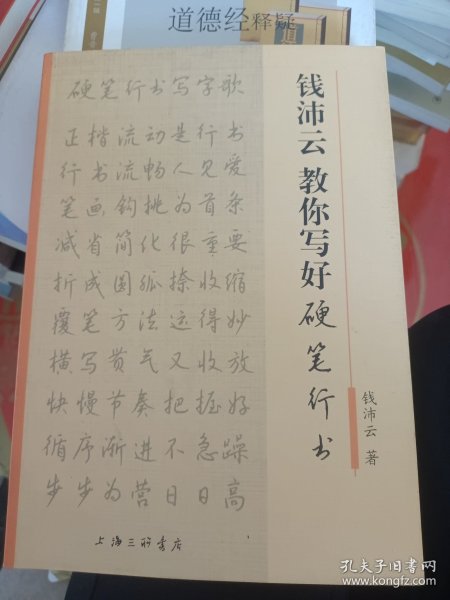 道德经释疑
硬笔行书写字歌
正楷流动是行书
行书流畅人见爱
笔画钩挑为首条
减省简化很重要
折成圆弧捺收缩
覆笔方法运得妙
横写贯气又收放
快慢节奏把握好
循序渐进不急躁
步步为营日日高
上海三联书店
钱沛云 教你写好硬笔行书
钱沛云 著
孔夫子旧书网
www.kongfz.com